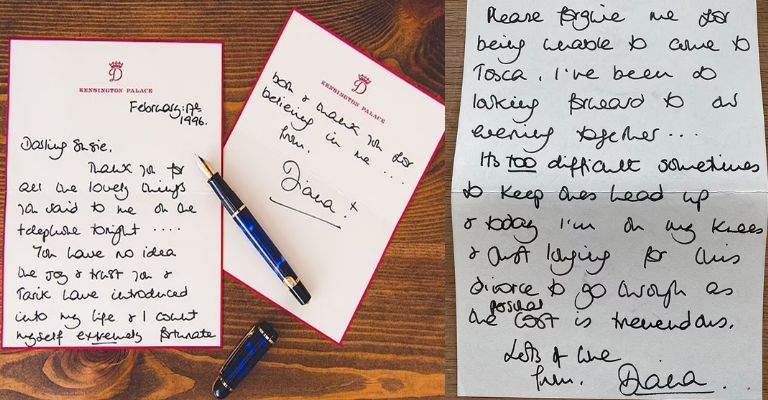 D
KENSINGTON PALACE
February: 17th
1996.
Darling Susie,
Thank you for
all the lovely things
you said to me on the
telephone tonight ....
You have no idea
the joy & trust you &
Tarik have introduced
into my life & I count
myself extremely fortunate
D
KENSINGTON PALACE
both & thank you for
believing in me ....
from.
Diana. x
Please forgive me for
being unable to come to
Tosca. I've been so
looking forward to our
evening together...
Its too difficult sometimes
to keep ones head up
& today I'm on my knees
& just longing for this
divorce to go through as
the personal cost is tremendous.
Lots of love
from. Diana.